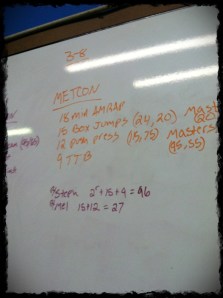 3-8
METCON
15 min AMRAP
15 box jumps (24, 20) Masters (20)
12 push press (95, 75) Masters 55)
9 TTB
Steph 2r + 15 + 9 = 96
Mel 15+12 = 27